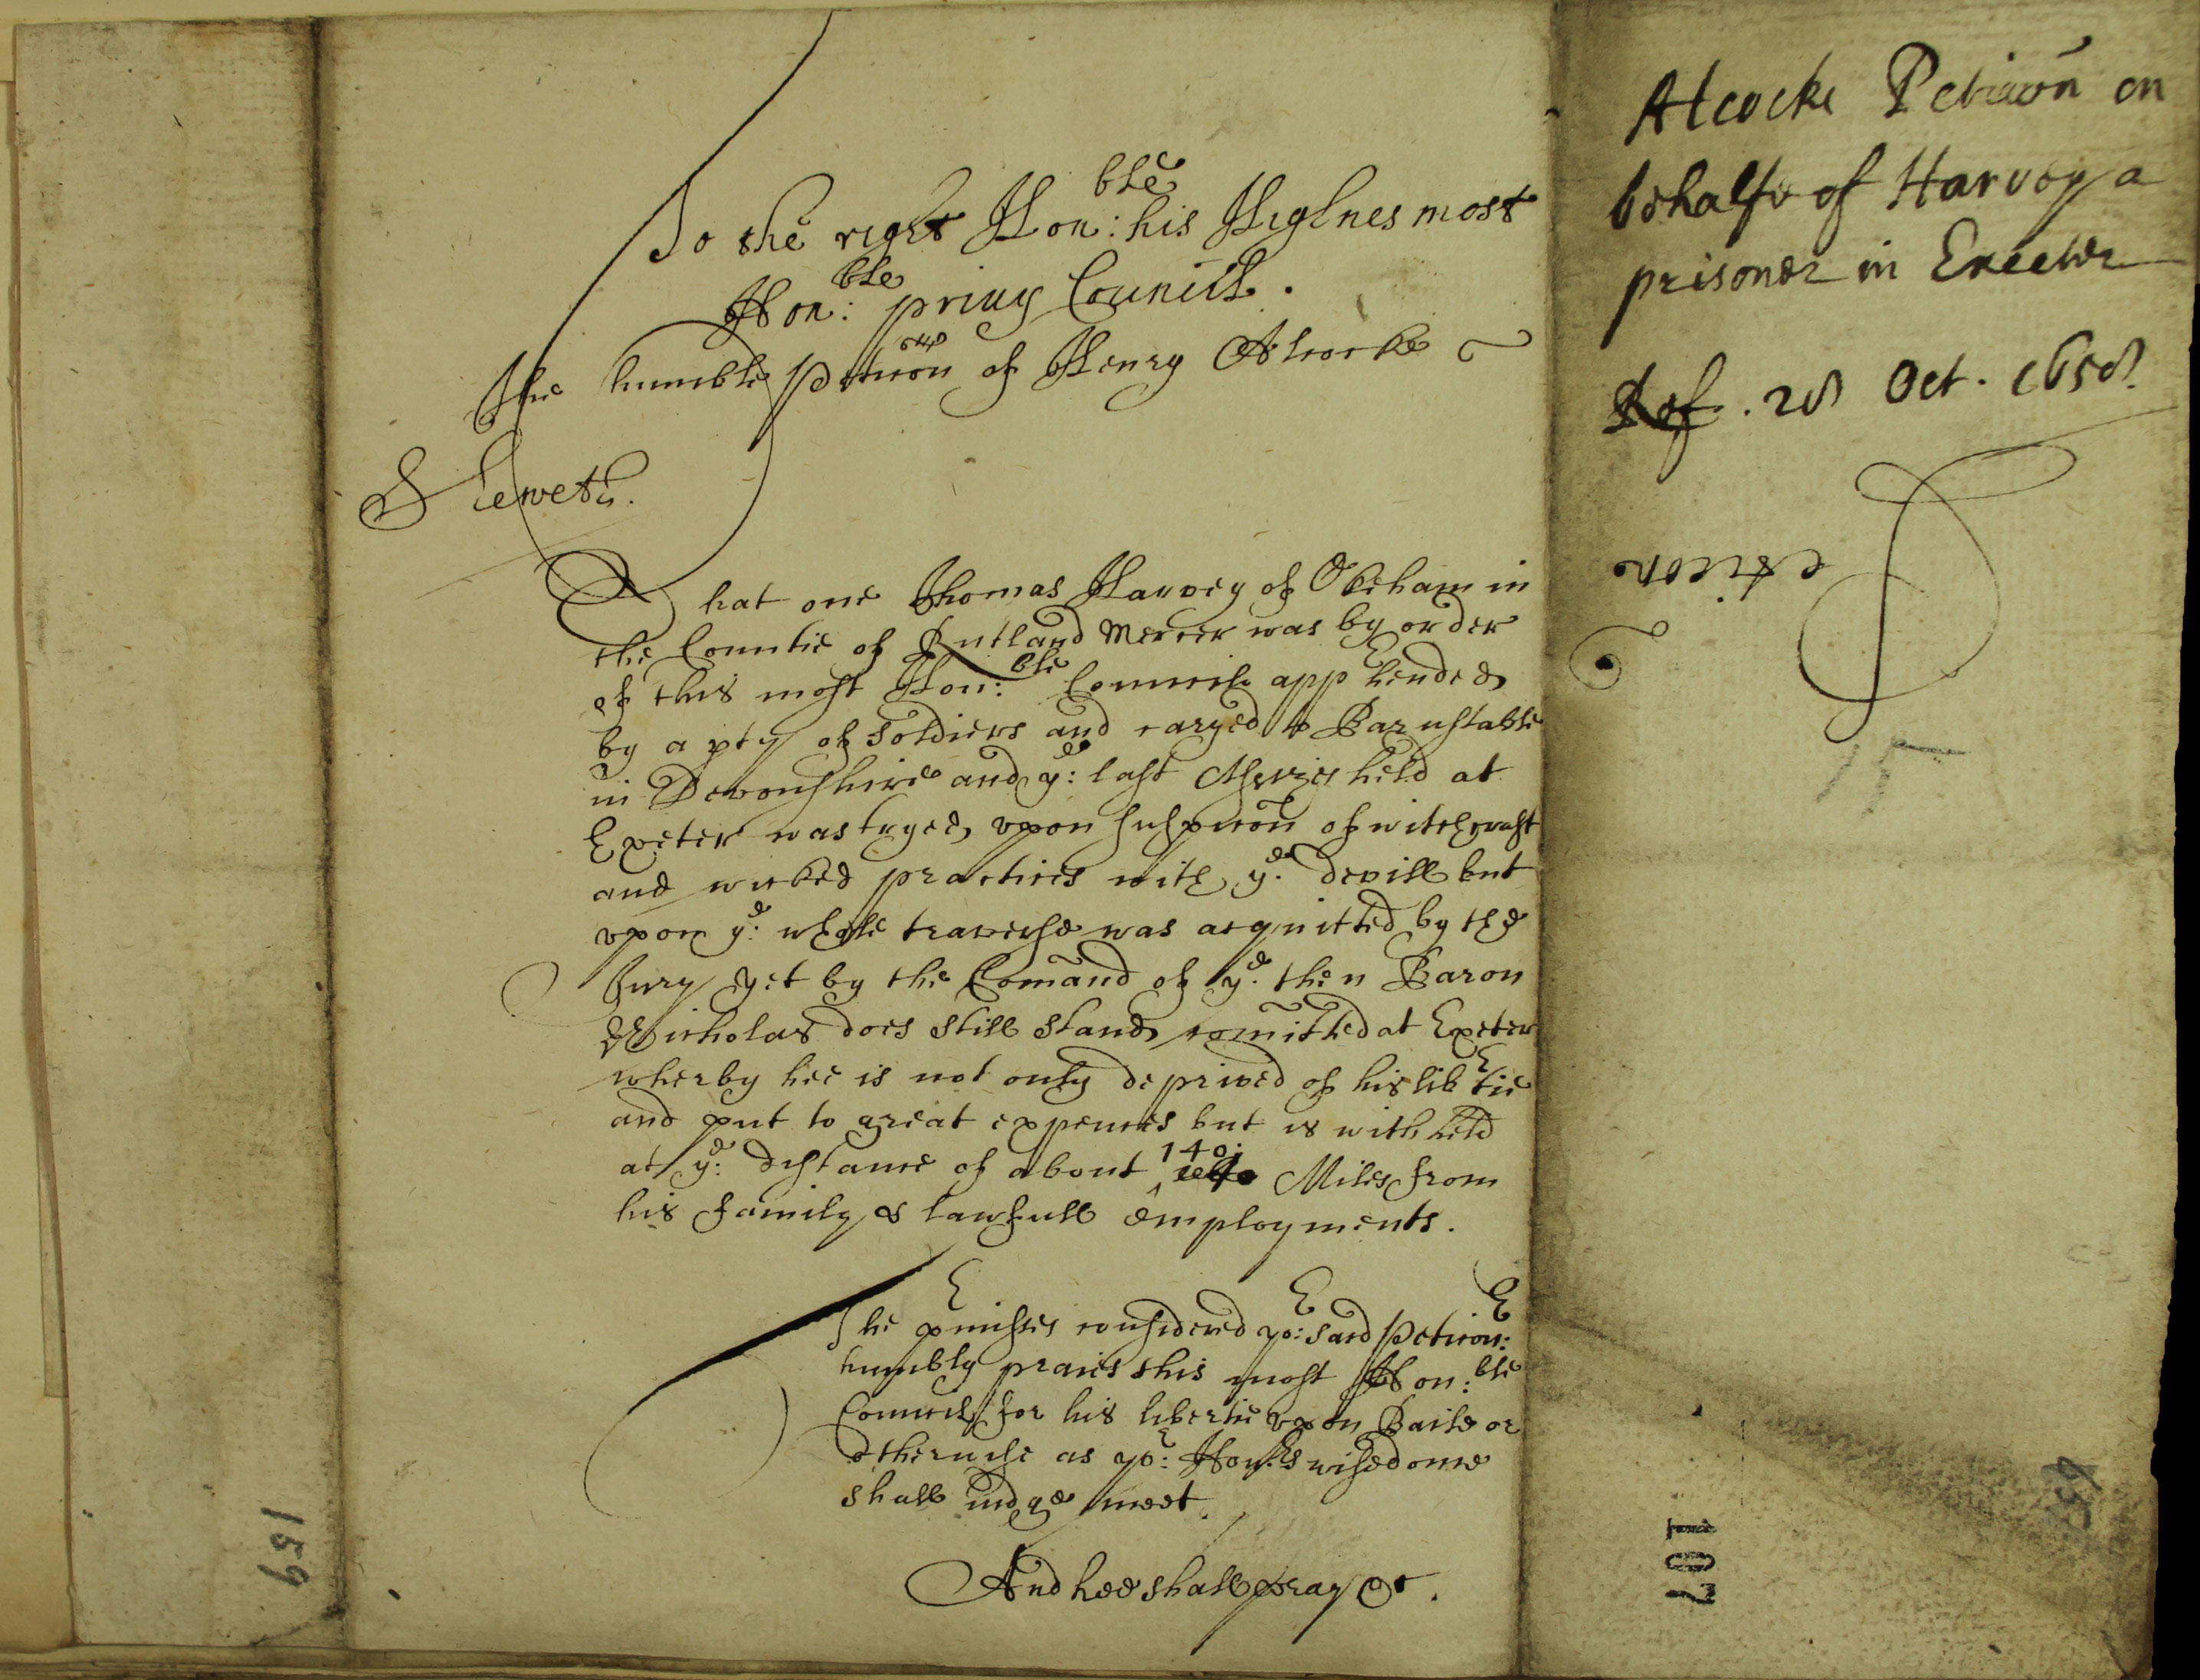 To the right Hon:ble his Highnes most
Hon:ble privy Councill.
The humble Peticon of Henry Alcocke
Sheweth.
That one Thomas Harvey of Okeham in
the Countie of Rutland Mercer was by order
of this most Hon:ble Councill apphended
by a pty of Soldiers and caryed to Barnstable
in Devonshire and ye: last Assizes held at
Exeter was tryed vpon suspicon of witchcraft
and wicked practices with ye. devill but
vpon ye: whole traverse was acquitted by the
Jury yet by the Comand of ye. then Baron
Nicholas does still stand comitted at Exeter
wherby hee is not only deprived of his libtie
and put to great expences but is withheld
at ye: distance of about 140: Miles from
his family & lawfull employments.
The pmisses considered yor: said Peticonr:
humbly praies this most Hon:ble
Councill for his libertie vpon Baile or
otherwise as yor: Honrs wisedome
shall iudge meet.
And hee shall pray &c.
Alcocke Peticon on
behalfe of Harvey a
prisoner in Exceter
Ref. 28 Oct. 1658.
Peticon
15
107
159